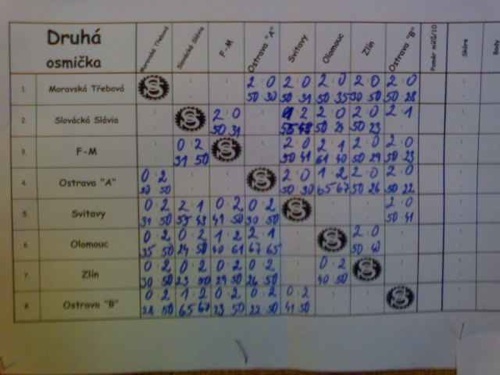 Druhá
osmička
Moravská Třebová
Slovácká Slávia
F-M
Ostrava "A"
Svitavy
Olomouc
Zlín
Ostrava "B"
Skóre
Body
1 Moravská Třebová 2 0 2 0 2 0 2 0 2 0
50 30 50 31 50 35 30 50 50 28
2 Slovácká Slávia 2 0 2 2 0 2 0 2 1
50 31 50 50 23
3 F-M 0 2 2 0 2 1 2 0 2 0
31 50 50 41 61 40 50 29 50 23
4 Ostrava "A" 0 2 2 0 1 2 2 0 2 0
30 50 50 30 65 67 50 26 50 22
5 Svitavy 0 2 2 1 0 2 0 2 2 0
31 50 41 50 30 50 50 41
6 Olomouc 0 2 0 2 1 2 2 1 2 0
35 50 50 40 61 67 65 50 40
7 Zlín 0 2 0 2 0 2 0 2 0 2
30 50 23 50 29 50 26 50 40 50
8 Ostrava "B" 0 2 1 2 0 2 0 2 0 2
28 50 23 50 22 50 41 50